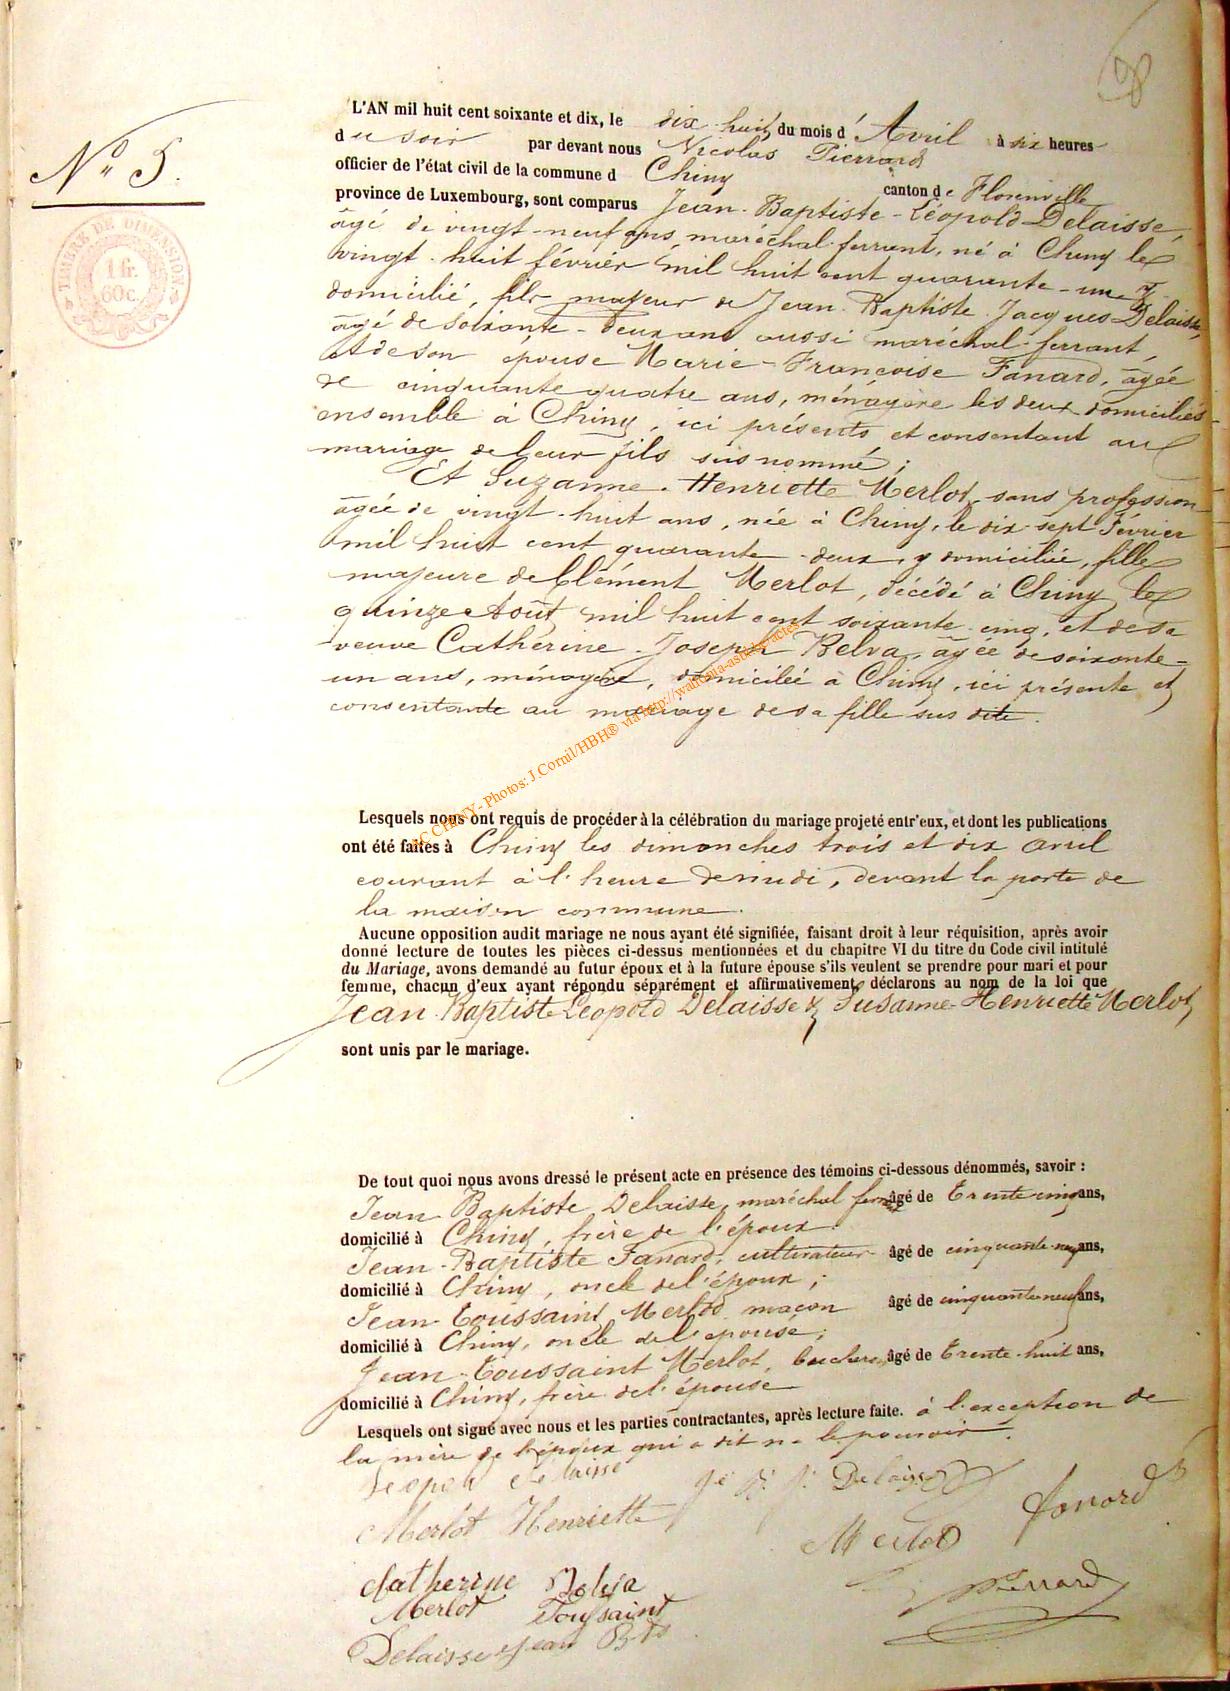 98
N° 5.
TIMBRE DE DIMENSION
1 fr.
60 c.
L'AN mil huit cent soixante et dix, le dix huit du mois d'Avril à six heures
du soir par devant nous Nicolas Pierrard
officier de l'état civil de la commune d Chiny canton de Florenville
province de Luxembourg, sont comparus Jean-Baptiste-Léopold Delaisse,
âgé de vingt-neuf ans, maréchal-ferrant, né à Chiny le
vingt-huit février mil huit cent quarante-un, y
domicilié, fils majeur de Jean-Baptiste-Jacques Delaisse,
âgé de soixante-deux ans aussi maréchal-ferrant,
et de son épouse Marie-Françoise Fanard, âgée
de cinquante quatre ans, ménagère les deux domiciliés
ensemble à Chiny, ici présents et consentant au
mariage de leur fils susnommé;
Et Suzanne-Henriette Merlot, sans profession
âgée de vingt-huit ans, née à Chiny, le dix-sept février
mil huit cent quarante-deux, y domiciliée, fille
majeure de Clément Merlot, décédé à Chiny le
quinze Août mil huit cent soixante-cinq, et de sa
veuve Catherine-Joseph Belva, âgée de soixante-
un ans, ménagère, domiciliée à Chiny, ici présente et
consentante au mariage de sa fille sus dite.
AC CHINY - Photos: J.Cornil/HBH® via http://wallonia-asbl.be/actes
Lesquels nous ont requis de procéder à la célébration du mariage projeté entr'eux, et dont les publications
ont été faites à Chiny les dimanches trois et dix avril
courant à l'heure de midi, devant la porte de
la maison commune.
Aucune opposition audit mariage ne nous ayant été signifiée, faisant droit à leur réquisition, après avoir
donné lecture de toutes les pièces ci-dessus mentionnées et du chapitre VI du titre du Code civil intitulé
du Mariage, avons demandé au futur époux et à la future épouse s'ils veulent se prendre pour mari et pour
femme, chacun d'eux ayant répondu séparément et affirmativement, déclarons au nom de la loi que
Jean-Baptiste-Léopold Delaisse & Susanne-Henriette Merlot
sont unis par le mariage.
De tout quoi nous avons dressé le présent acte en présence des témoins ci-dessous dénommés, savoir :
Jean Baptiste Delaisse, maréchal ferrant âgé de Trente cinq ans,
domicilié à Chiny, frère de l'époux.
Jean-Baptiste Fanard, cultivateur âgé de cinquante-neuf ans,
domicilié à Chiny, oncle de l'époux;
Jean-Toussaint Merlot maçon âgé de cinquante neuf ans,
domicilié à Chiny, oncle de l'épouse;
Jean-Toussaint Merlot, bucheron âgé de Trente-huit ans,
domicilié à Chiny, frère de l'épouse
Lesquels ont signé avec nous et les parties contractantes, après lecture faite. à l'exception de
la mère de l'époux qui a dit ne le pouvoir.
Leopold Delaisse J. B. J. Delaisse
Fanard
Merlot Henriette Merlot
Catherine Belva Pierrard
Merlot Toussaint
Delaisse Jean Bte